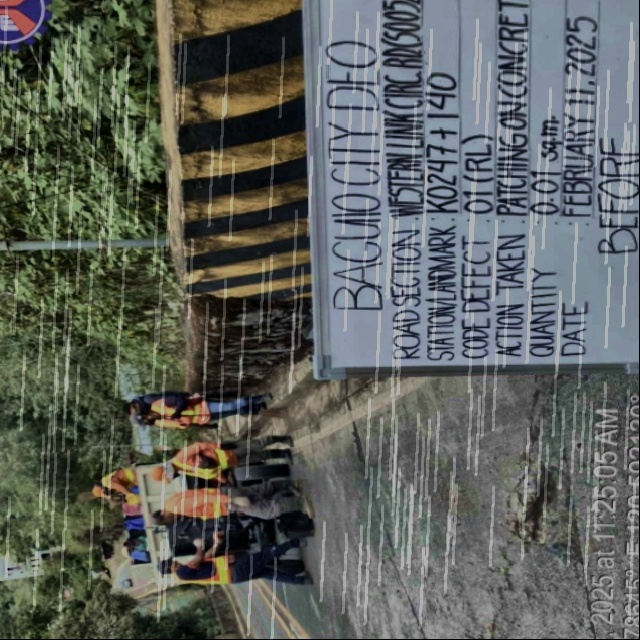 BAGUIO CITY DEO
ROAD SECTION : WESTERN LINK CIRC. RD(S005
STATION LANDMARK : K0247 + 140
CODE DEFECT : 01 (RL)
ACTION TAKEN : PATCHING ON CONCRET
QUANTITY : 0.01 sqm.
DATE : FEBRUARY 11, 2025
BEFORE
2025 at 11:25:05 AM